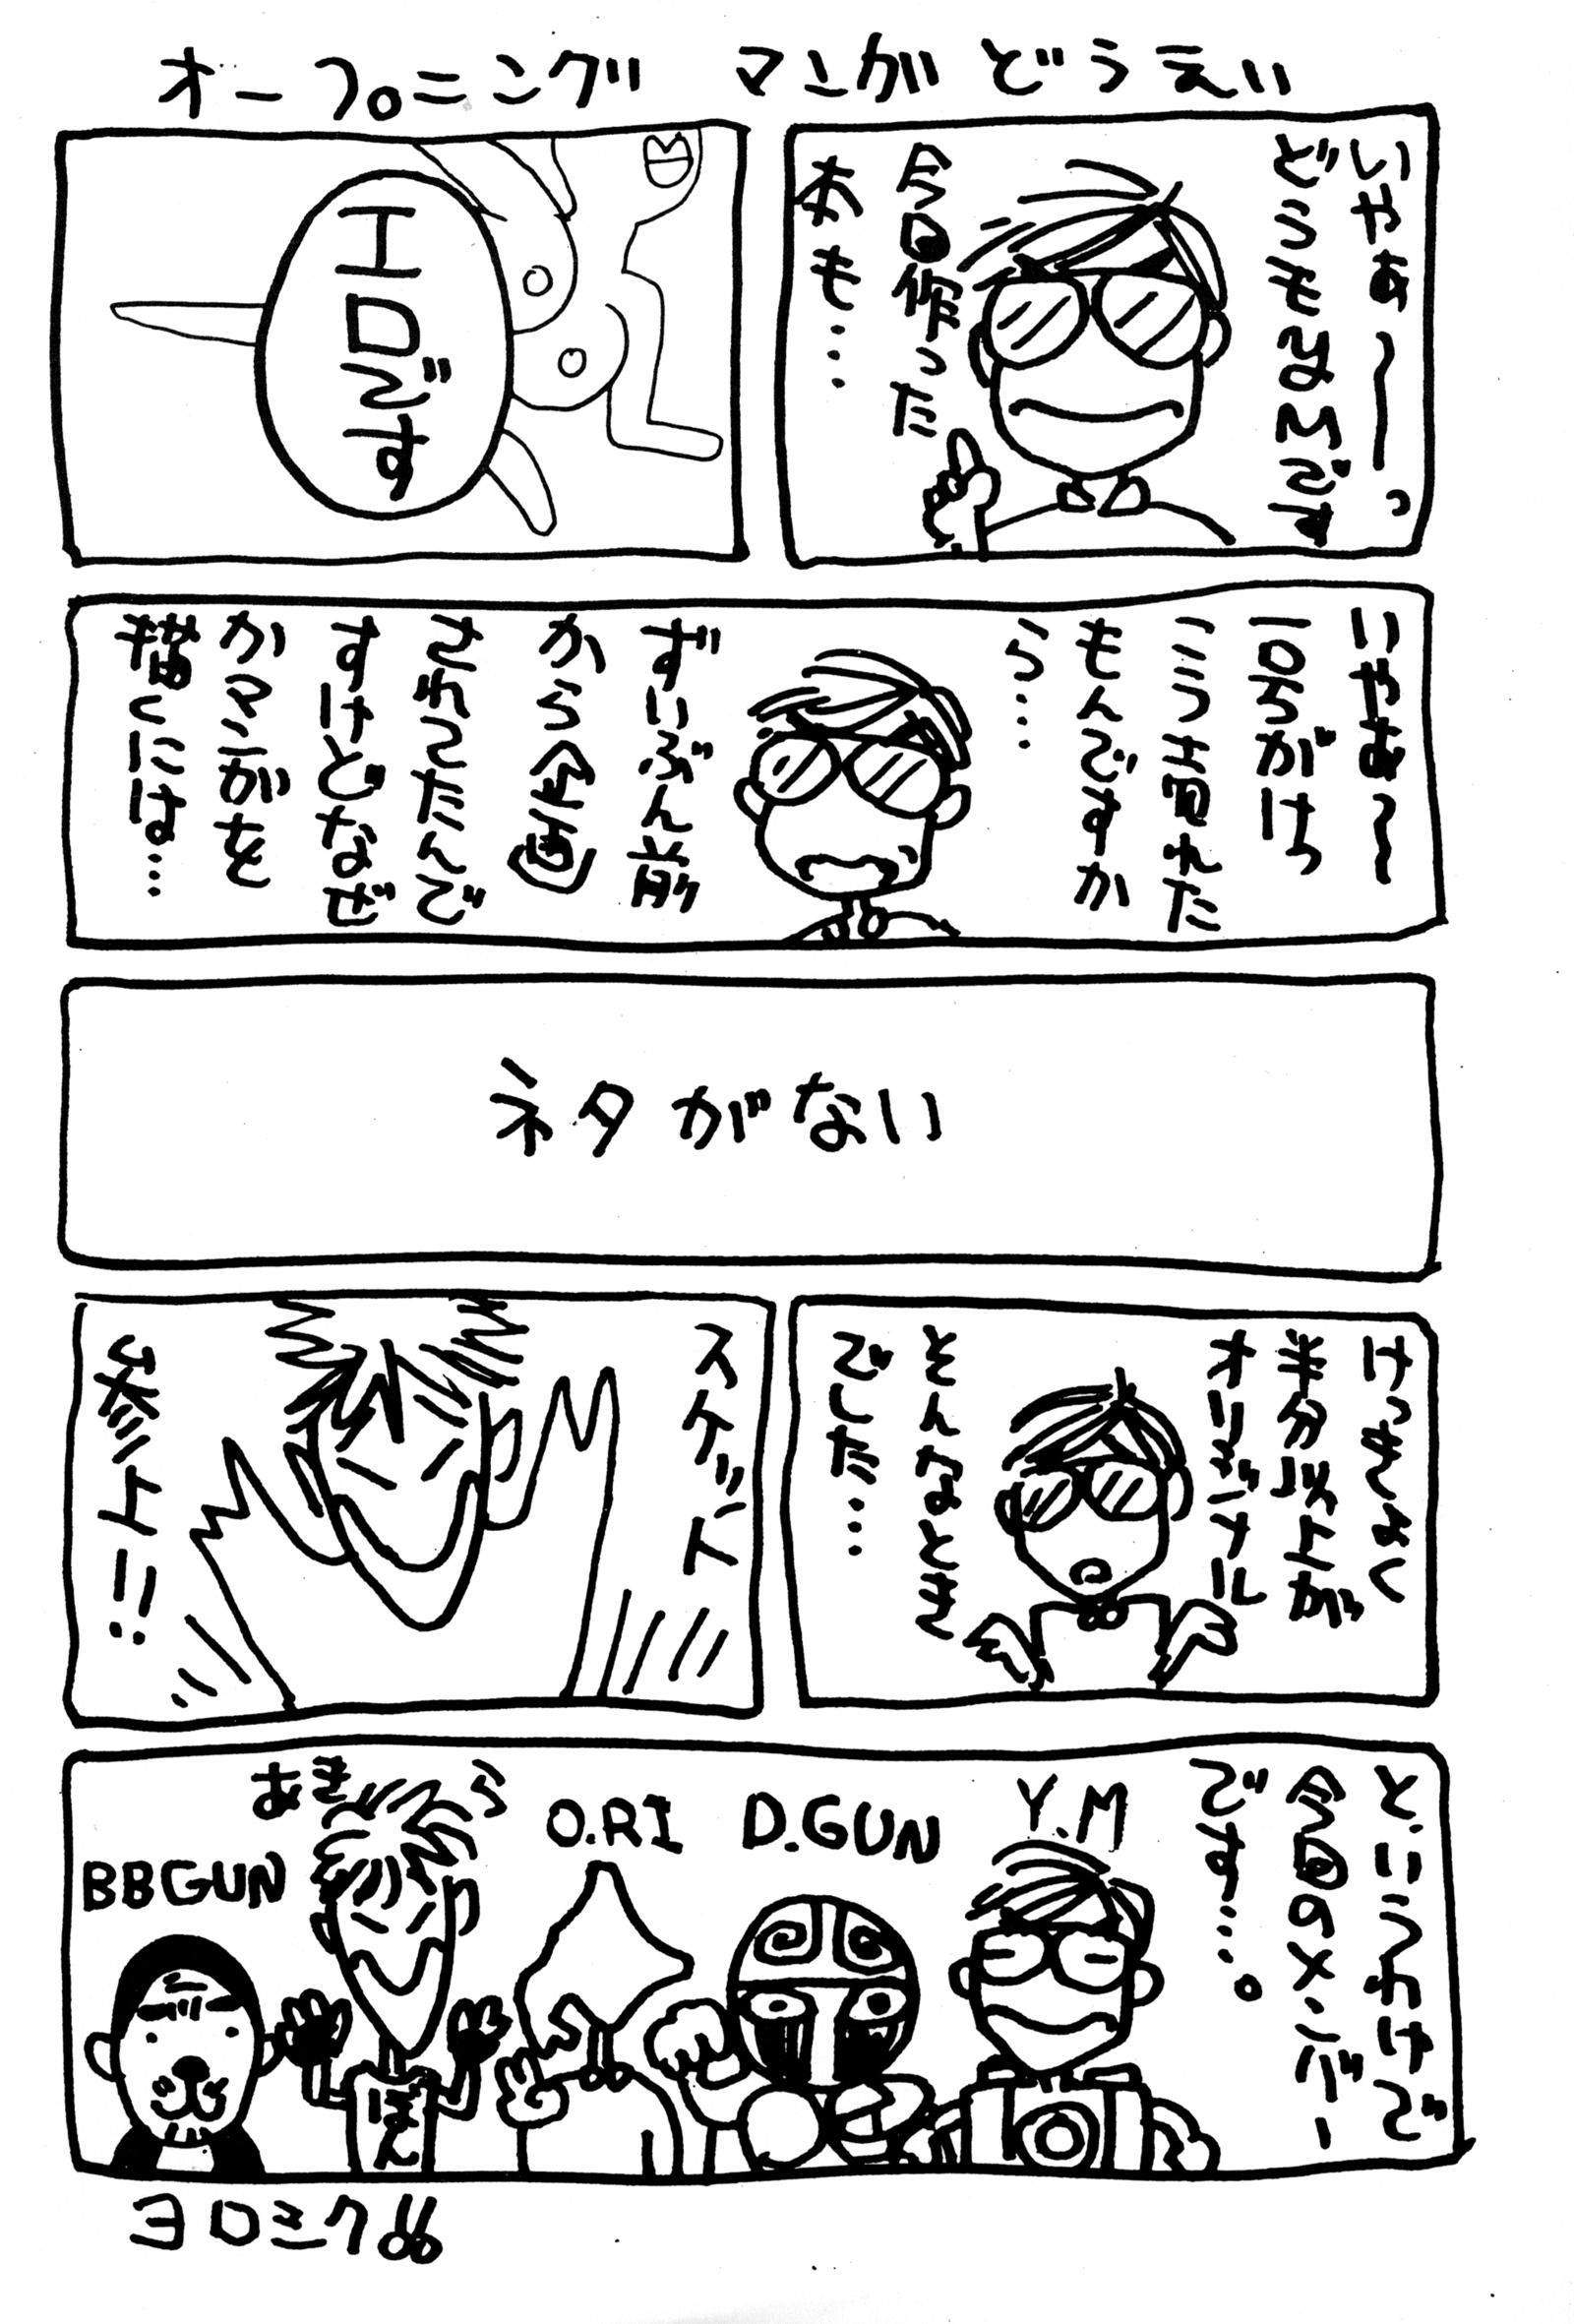 オープニング マンガ どうえい
いやあ〜〜っ
どうもY.Mです
今回作った
本も…
エロです
いやあ〜〜
一号がけっ
こう売れた
もんですか
ら…
ずいぶん前
から企画
されてたんで
すけどなぜ
かマンガを
描くには…
ネタがない
けっきょく
半分以上が
オリジナル
そんなとき
でした…
スケット
参上!!
というわけで
今回のメンバー
です…。
Y.M
D.GUN
O.RI
BBGUN
ぽん
ヨロミク!!